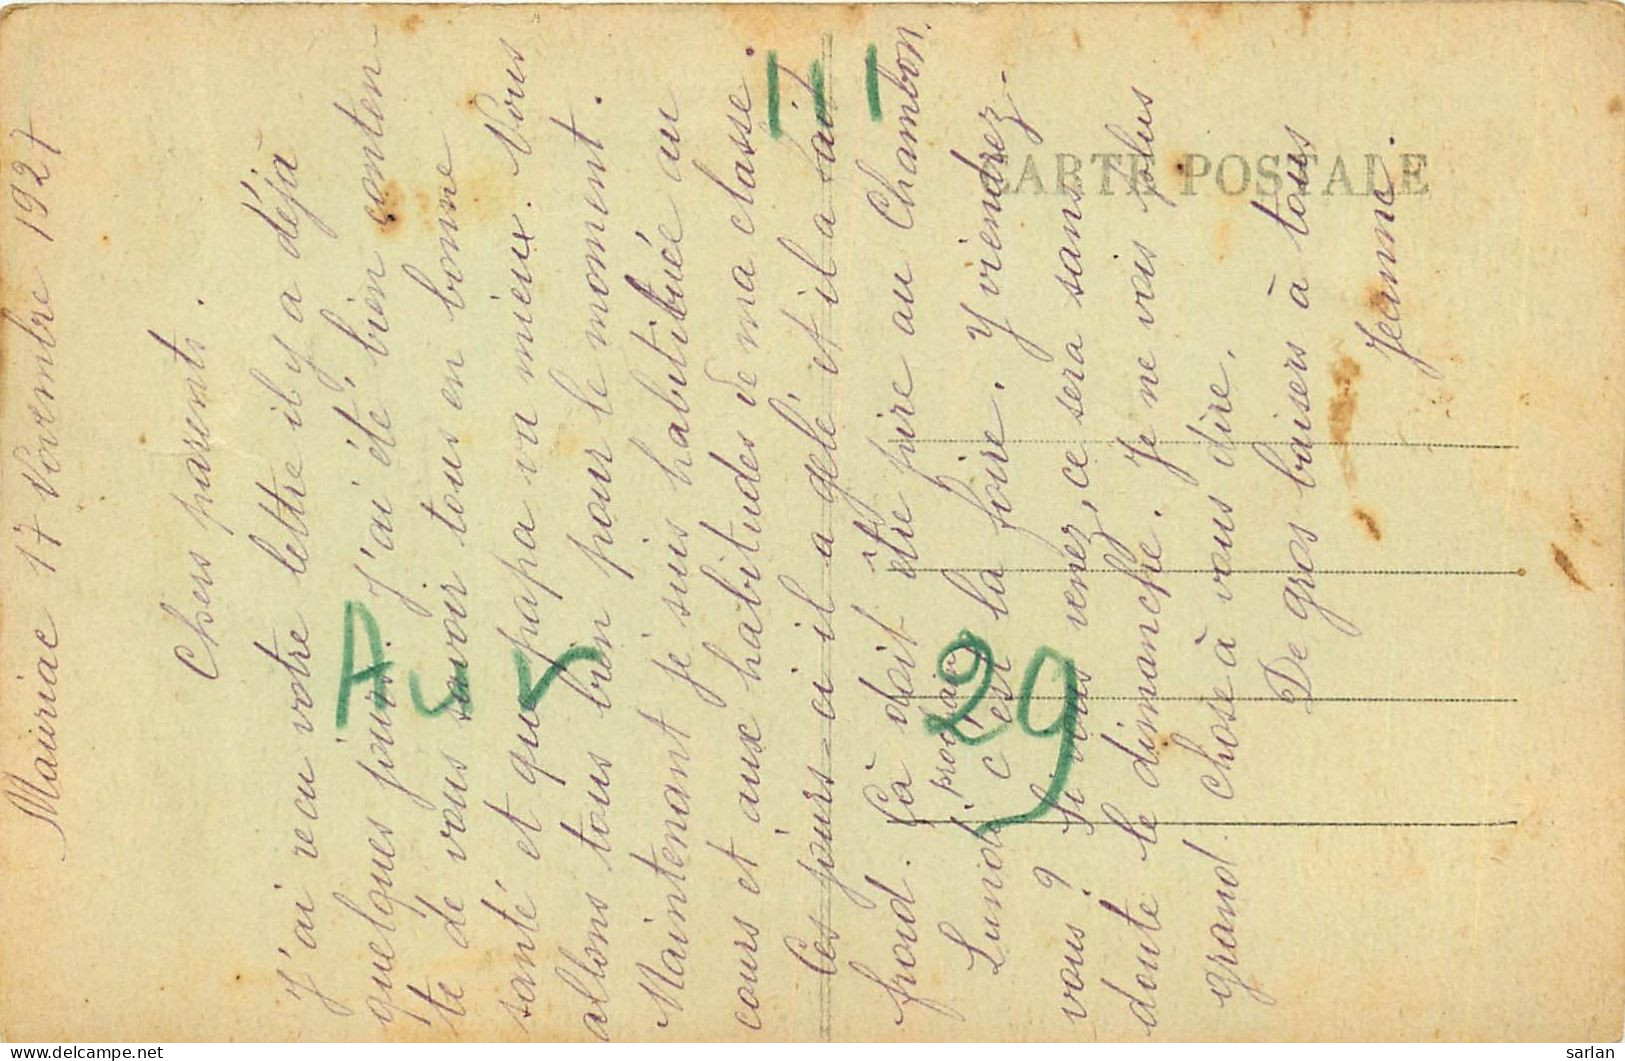 Mauriac 17 Novembre 1927
Chers parents.
J'ai reçu votre lettre il y a déjà
quelques jours. J'ai été bien conten-
te de vous savoir tous en bonne
santé et que papa va mieux. Nous
allons tous bien pour le moment.
Maintenant je suis habitituée au
cours et aux habitudes de ma classe.
Ces jours-ci il a gelé et il a fait
froid. Çà doit être pire au Chambon.
Lundi prochain c'est la foire. Y viendrez-
vous? Si vous venez, ce sera sans
doute le dimanche. Je ne vois plus
grand chose à vous dire.
De gros baisers à tous
Jeanne.
CARTE POSTALE
Aur
29
delcampe.net
sarlan